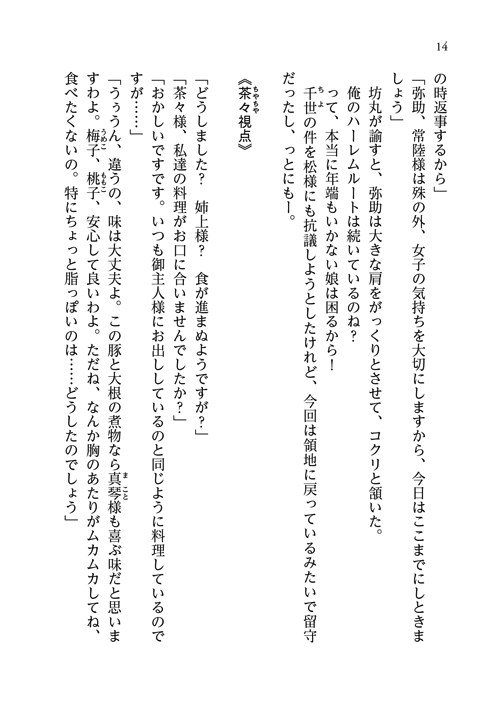 14
の時返事するから」
「弥助、常陸様は殊の外、女子の気持ちを大切にしますから、今日はここまでにしときま
しょう」
坊丸が諭すと、弥助は大きな肩をがっくりとさせて、コクリと頷いた。
俺のハーレムルートは続いているのね？
って、本当に年端もいかない娘は困るから！
千世の件を松様にも抗議しようとしたけれど、今回は領地に戻っているみたいで留守
だったし、っとにもー。
《茶々視点》
「どうしました？　姉上様？　食が進まぬようですが？」
「茶々様、私達の料理がお口に合いませんでしたか？」
「おかしいですです。いつも御主人様にお出ししているのと同じように料理しているので
すが……」
「うぅうん、違うの、味は大丈夫よ。この豚と大根の煮物なら真琴様も喜ぶ味だと思いま
すわよ。梅子、桃子、安心して良いわよ。ただね、なんか胸のあたりがムカムカしてね、
食べたくないの。特にちょっと脂っぽいのは……どうしたのでしょう」